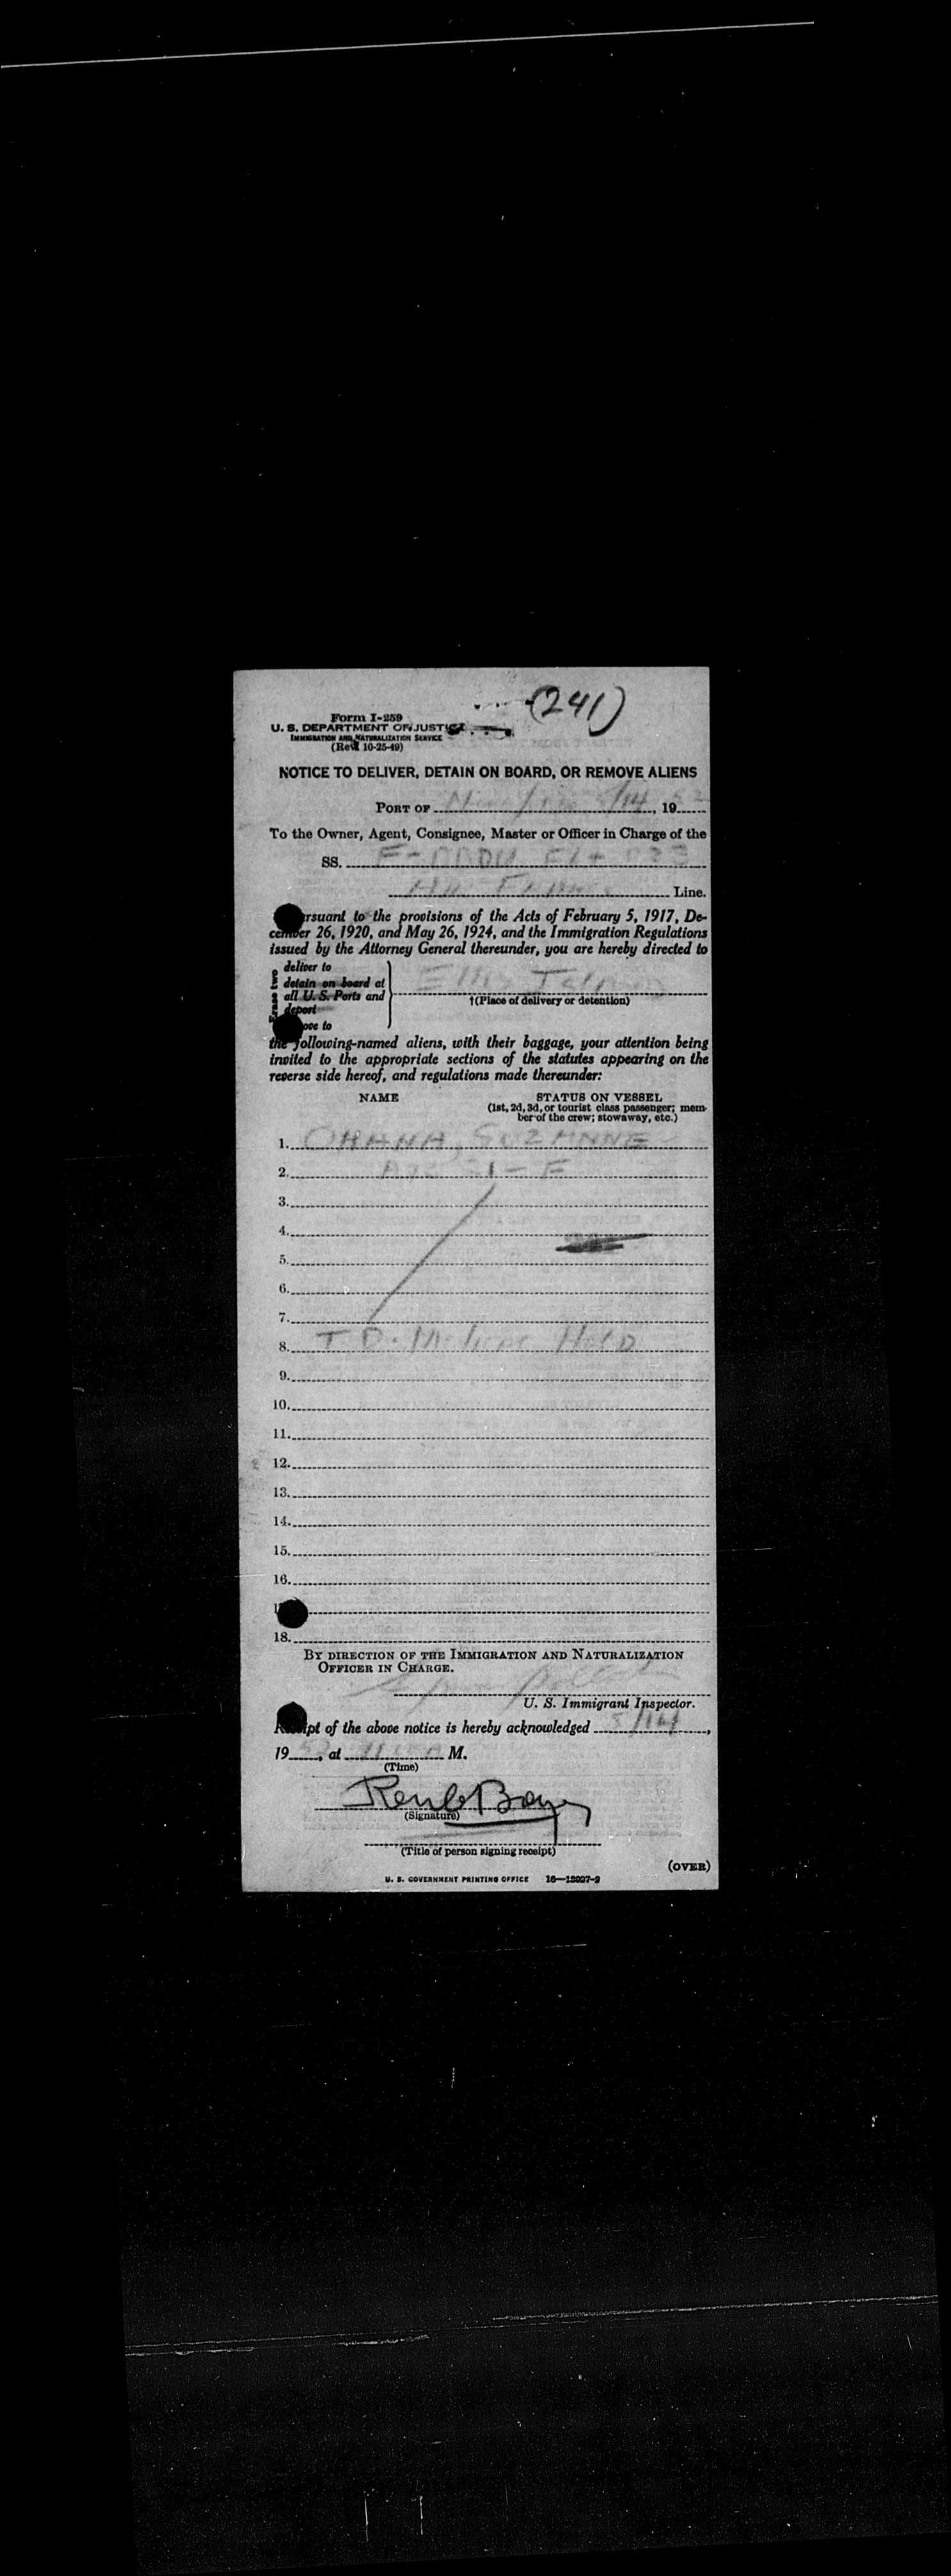 (241)
Form I-259
U. S. DEPARTMENT OF JUSTICE
IMMIGRATION AND NATURALIZATION SERVICE
(Rev. 10-25-49)
NOTICE TO DELIVER, DETAIN ON BOARD, OR REMOVE ALIENS
PORT OF New York /14, 19
To the Owner, Agent, Consignee, Master or Officer in Charge of the
SS. F- Flt
Air France Line.
rsuant to the provisions of the Acts of February 5, 1917, De-
cember 26, 1920, and May 26, 1924, and the Immigration Regulations
issued by the Attorney General thereunder, you are hereby directed to
Erase two
deliver to
detain on board at
all U. S. Ports and
deport
ove to
Ellis Island
†(Place of delivery or detention)
the following-named aliens, with their baggage, your attention being
invited to the appropriate sections of the statutes appearing on the
reverse side hereof, and regulations made thereunder:
NAME
STATUS ON VESSEL
(1st, 2d, 3d, or tourist class passenger; mem-
ber of the crew; stowaway, etc.)
1. OHANA, SUZANNE
2. AGE 31 - F
3.
4.
5.
6.
7.
8. T.D. Medical Hold
9.
10.
11.
12.
13.
14.
15.
16.
1
18.
BY DIRECTION OF THE IMMIGRATION AND NATURALIZATION
OFFICER IN CHARGE.
U. S. Immigrant Inspector.
R ipt of the above notice is hereby acknowledged /14,
19, at M.
(Time)
(Signature)
(Title of person signing receipt)
(OVER)
U. S. GOVERNMENT PRINTING OFFICE 16—13027-2